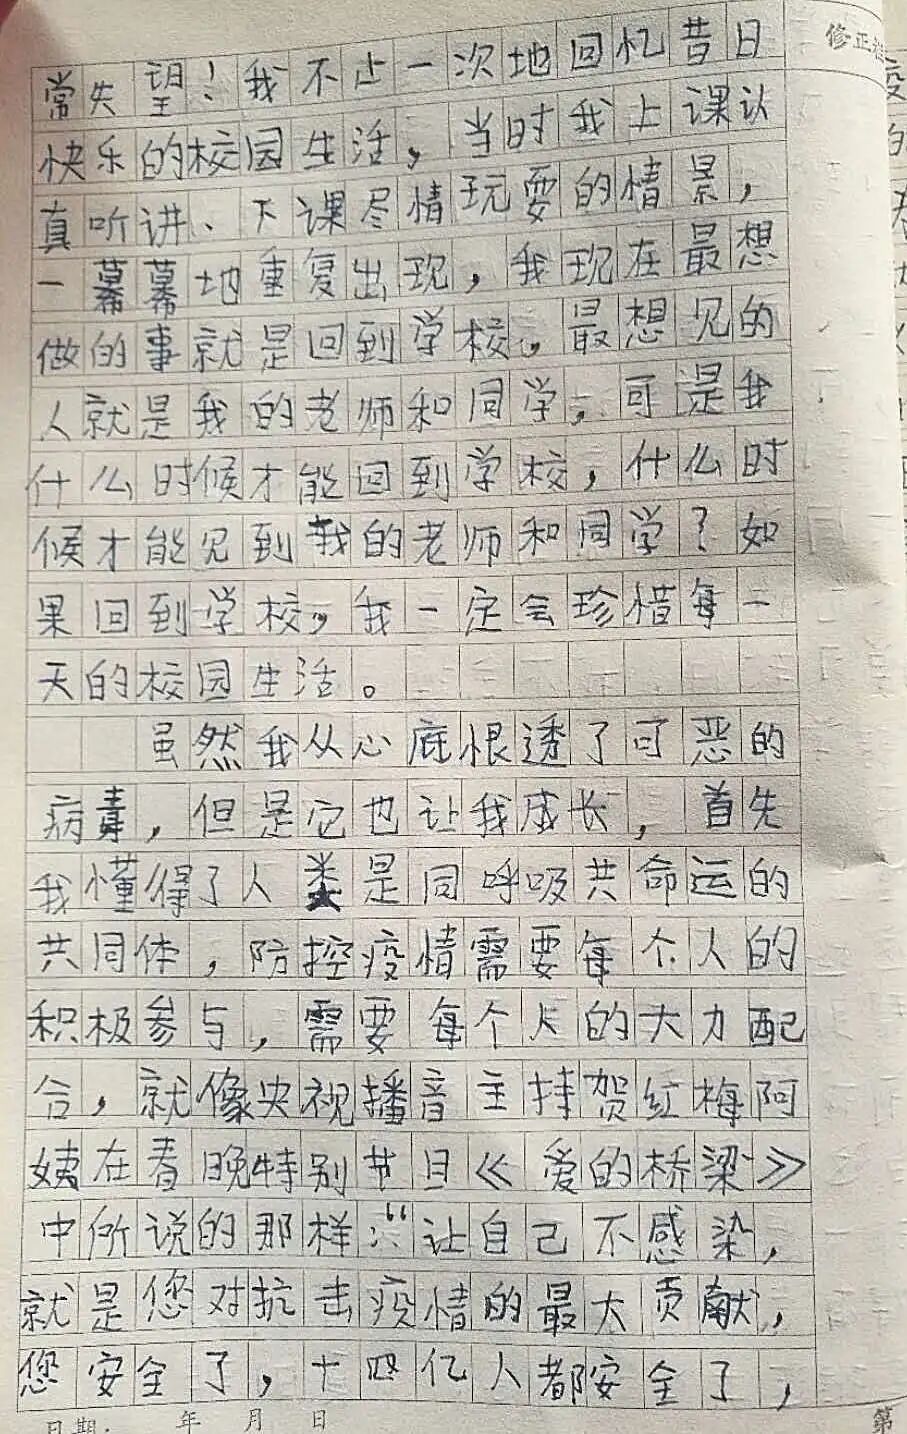 修正
常失望！我不止一次地回忆昔日
快乐的校园生活，当时我上课认
真听讲、下课尽情玩耍的情景，
一幕幕地重复出现，我现在最想
做的事就是回到学校。最想见的
人就是我的老师和同学，可是我
什么时候才能回到学校，什么时
候才能见到我的老师和同学？如
果回到学校，我一定会珍惜每一
天的校园生活。
虽然我从心底恨透了可恶的
病毒，但是它也让我成长，首先
我懂得了人类是同呼吸共命运的
共同体，防控疫情需要每个人的
积极参与，需要每个人的大力配
合，就像央视播音主持贺红梅阿
姨在春晚特别节目《爱的桥梁》
中所说的那样：“让自己不感染，
就是您对抗击疫情的最大贡献，
您安全了，十四亿人都安全了，
日期： 年 月 日 第